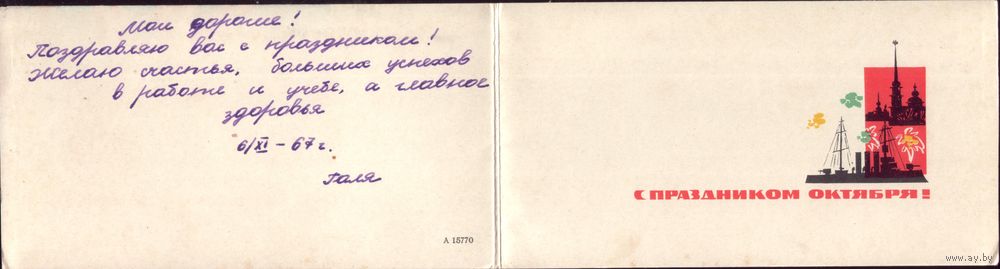 Мои дорогие!
Поздравляю вас с праздником!
Желаю счастья, больших успехов
в работе и учебе, а главное
здоровья
6/XI – 67 г.
Галя
А 15770
С ПРАЗДНИКОМ ОКТЯБРЯ!!
www.ay.by